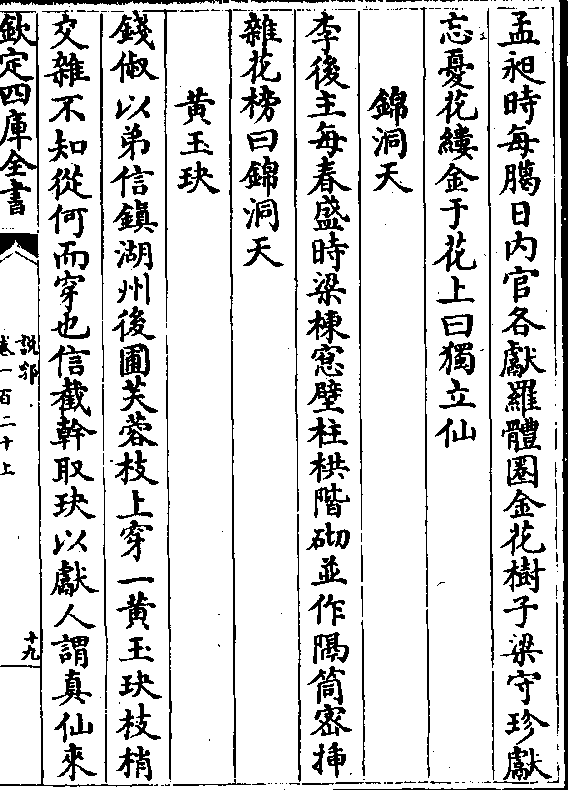 孟昶時每臈日内官各獻羅體圏金花樹子梁守珍獻
忘憂花縷金于花上曰獨立仙
錦洞天
李後主每春盛時梁棟窓壁柱栱階砌並作隔筒宻揷
雜花榜曰錦洞天
黄玉玦
錢俶以弟信鎮湖州後圃芙蓉枝上穿一黄玉玦枝梢
交雜不知從何而穿也信截幹取玦以獻人謂真仙來
欽定四庫全書
説郛
卷一百二十上
十九